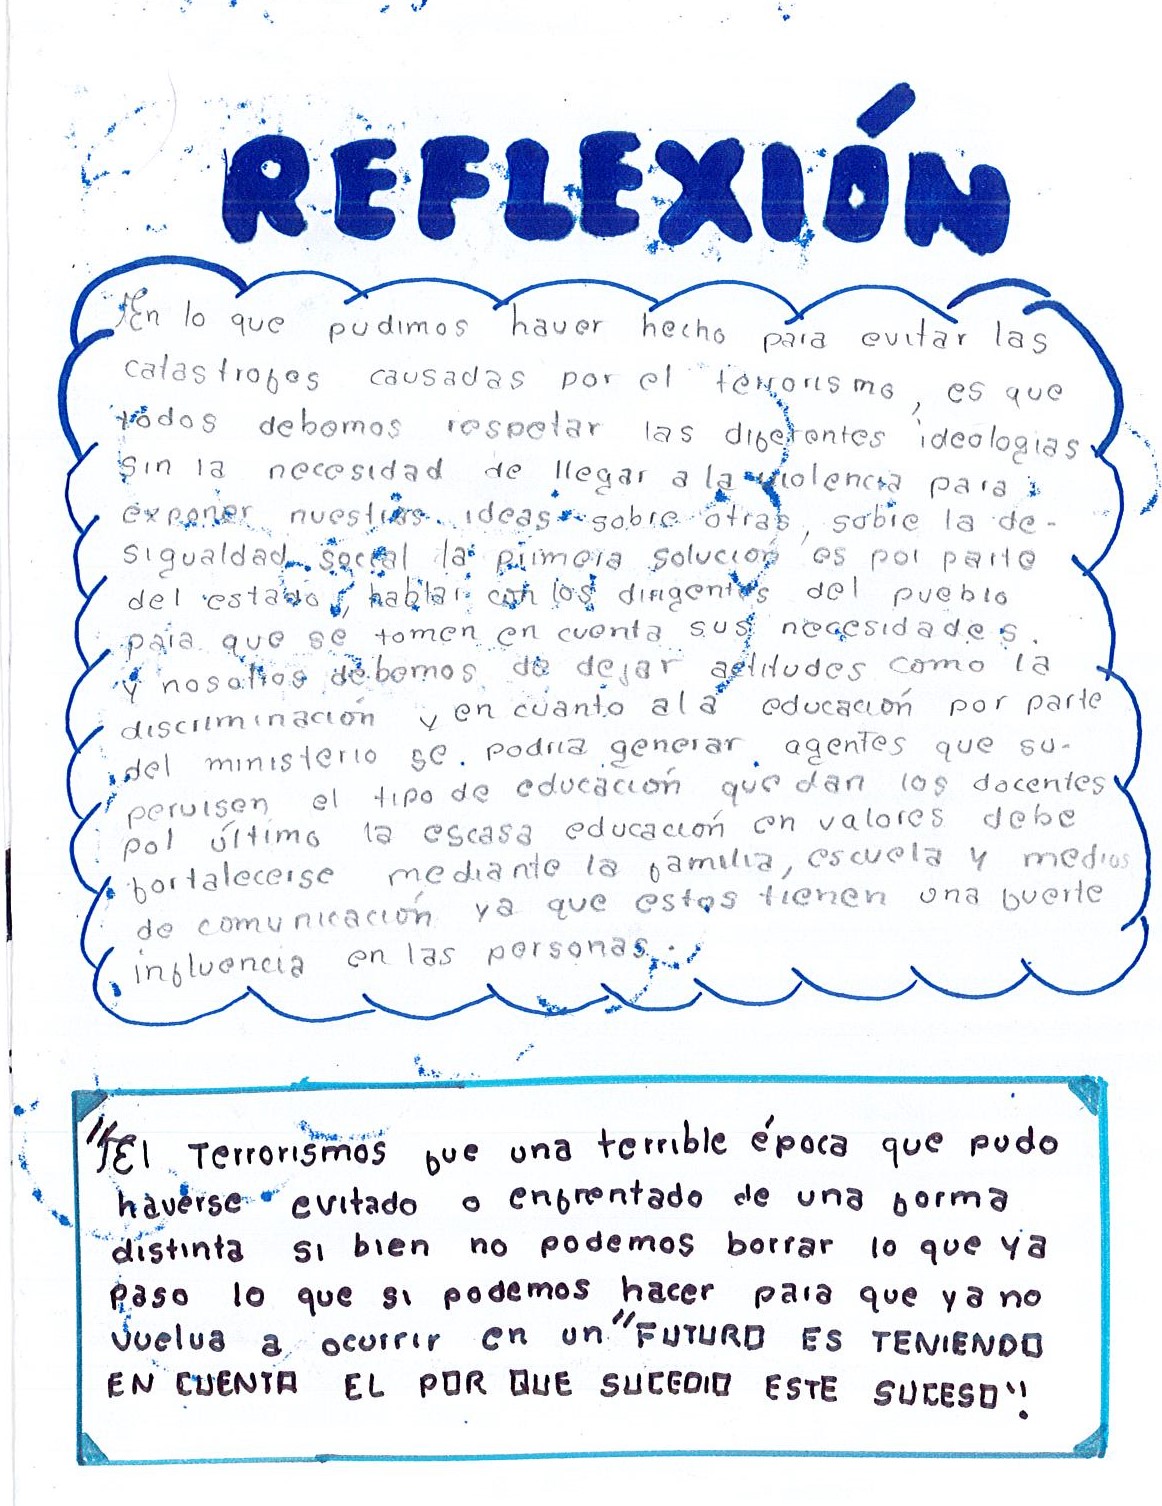 REFLEXIÓN
En lo que pudimos haver hecho para evitar las
catastrofes causadas por el terrorismo, es que
todos debemos respetar las diferentes ideologias
sin la necesidad de llegar a la violencia para
exponer nuestras ideas sobre otras, sobre la de-
sigualdad social la primera solución es por parte
del estado, hablar con los dirigentes del pueblo
para que se tomen en cuenta sus necesidades.
y nosotros debemos de dejar actitudes como la
discriminación y en cuanto a la educación por parte
del ministerio se podria generar agentes que su-
pervisen el tipo de educación que dan los docentes
por último la escasa educación en valores debe
fortalecerse mediante la familia, escuela y medios
de comunicación ya que estos tienen una fuerte
influencia en las personas.
"El Terrorismos fue una terrible época que pudo
haverse evitado o enfrentado de una forma
distinta si bien no podemos borrar lo que ya
paso lo que si podemos hacer para que ya no
vuelva a ocurrir en un "FUTURO ES TENIENDO
EN CUENTA EL POR QUE SUCEDIO ESTE SUCESO"!